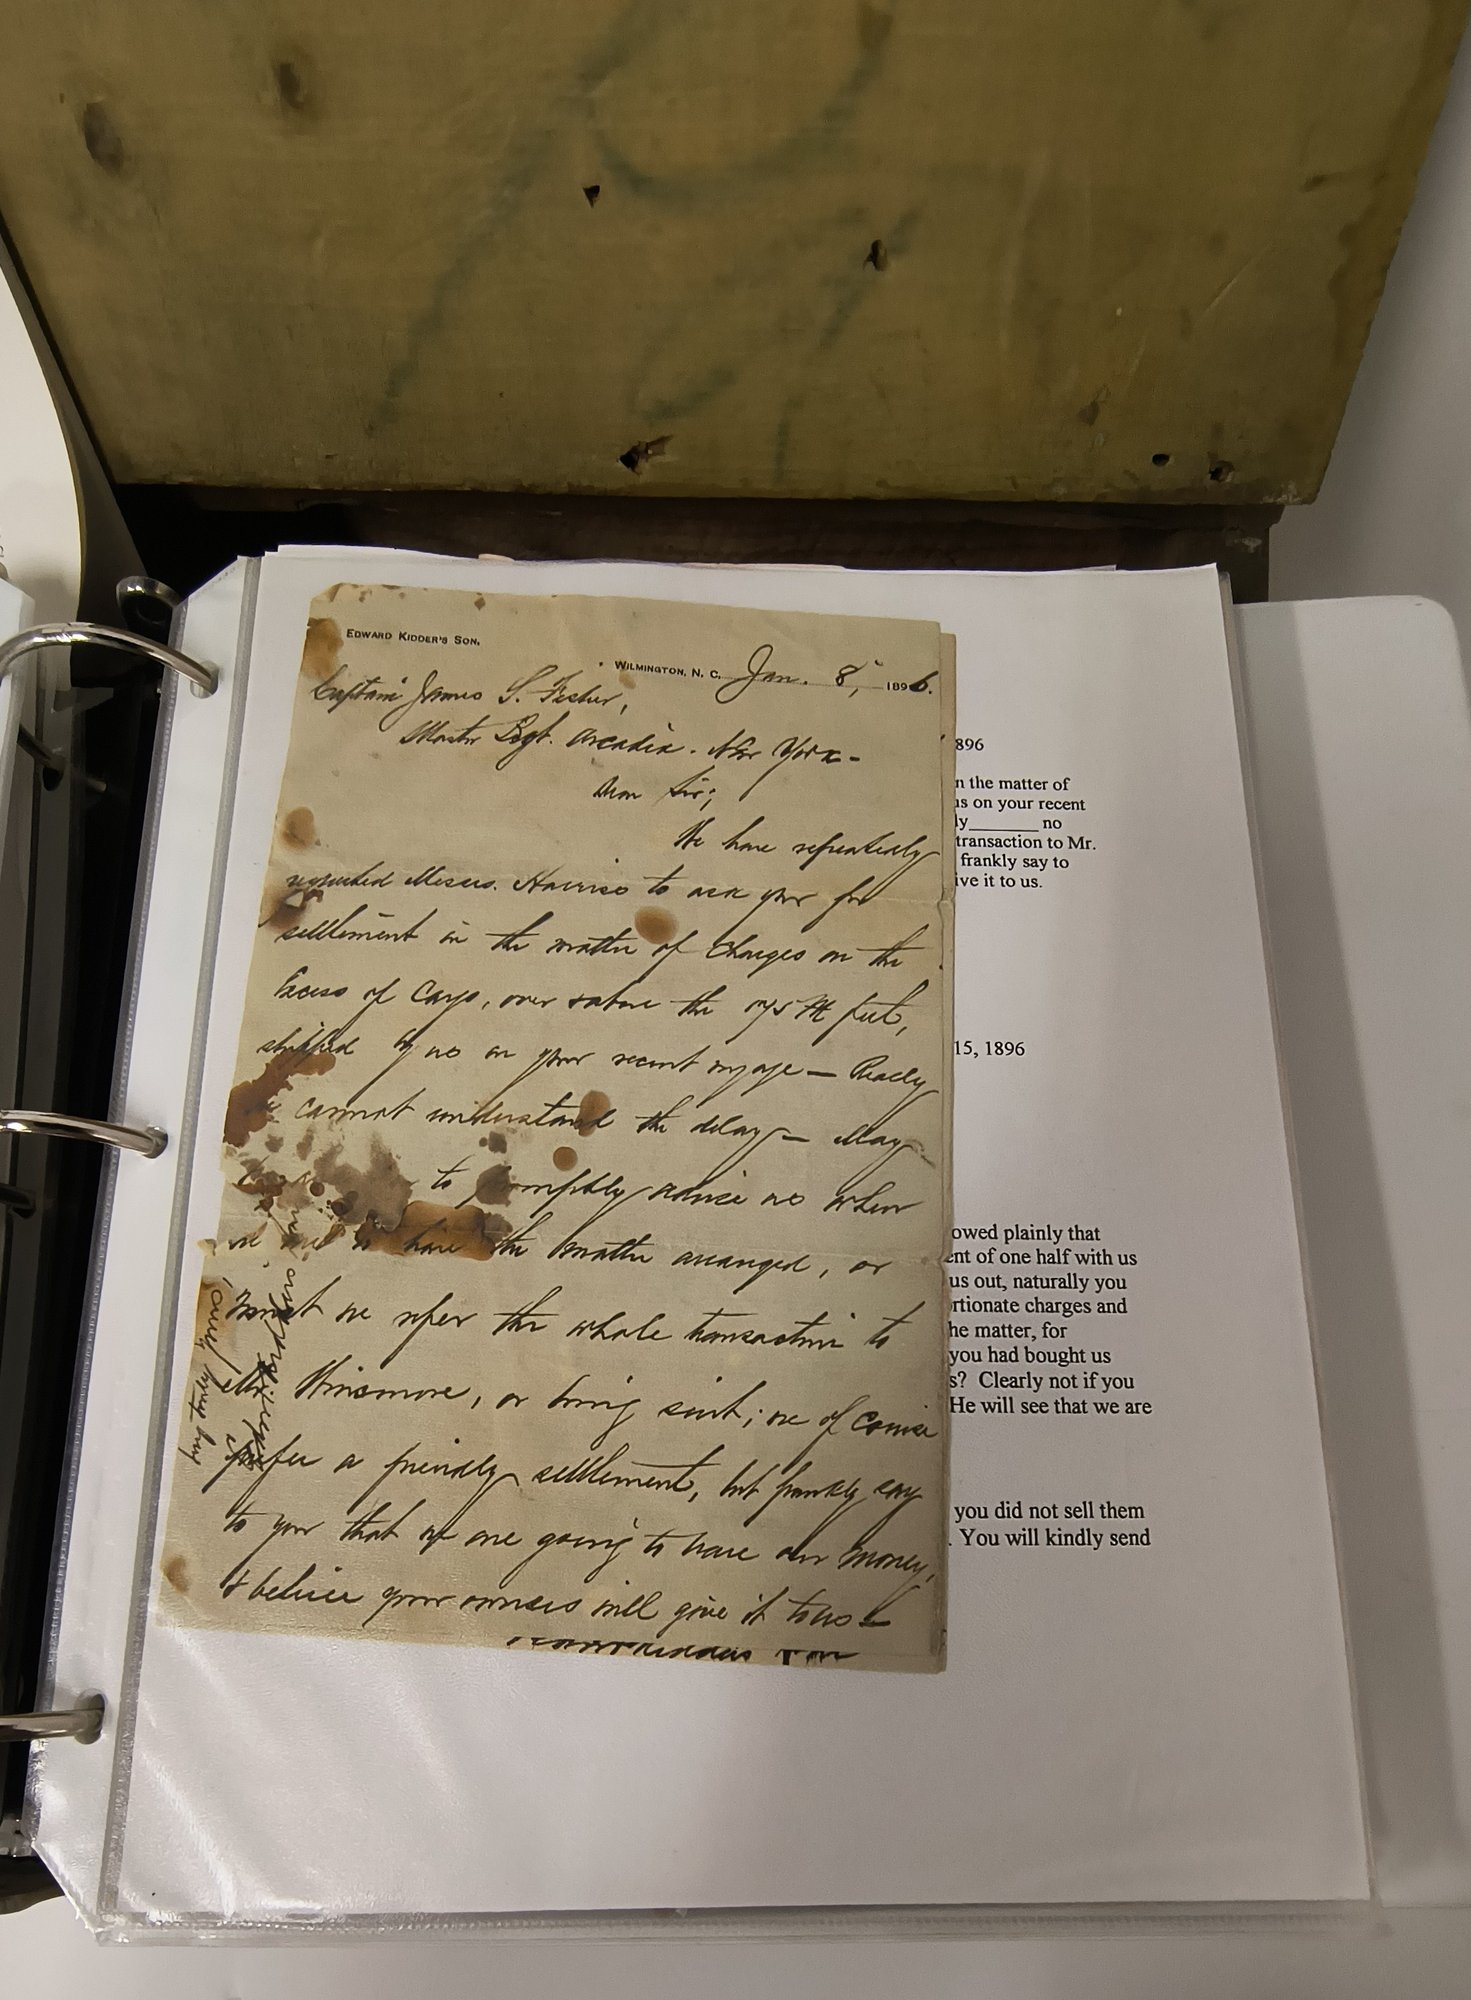 EDWARD KIDDER'S SON.
WILMINGTON, N. C. Jan. 8, 1896.
Captain James S. Fisher,
Master Bgt. Arcadia. New York -
Dear Sir;
We have repeatedly
requested Messrs. to ask you for
settlement in the matter of charges on the
Excess of Cargo, over & above the M feet,
shipped by us on your recent voyage — Really
we cannot understand the delay — May
to promptly advise us when
we are to have the matter arranged, or
must we refer the whole transaction to
Mr. Winsmore, or bring suit; we of course
prefer a friendly settlement, but frankly say
to you that we are going to have our money,
& believe your owners will give it to us —
Son
very truly yours,
896
n the matter of
us on your recent
ly_______ no
transaction to Mr.
frankly say to
ive it to us.
15, 1896
owed plainly that
ent of one half with us
us out, naturally you
rtionate charges and
he matter, for
you had bought us
s? Clearly not if you
He will see that we are
you did not sell them
. You will kindly send